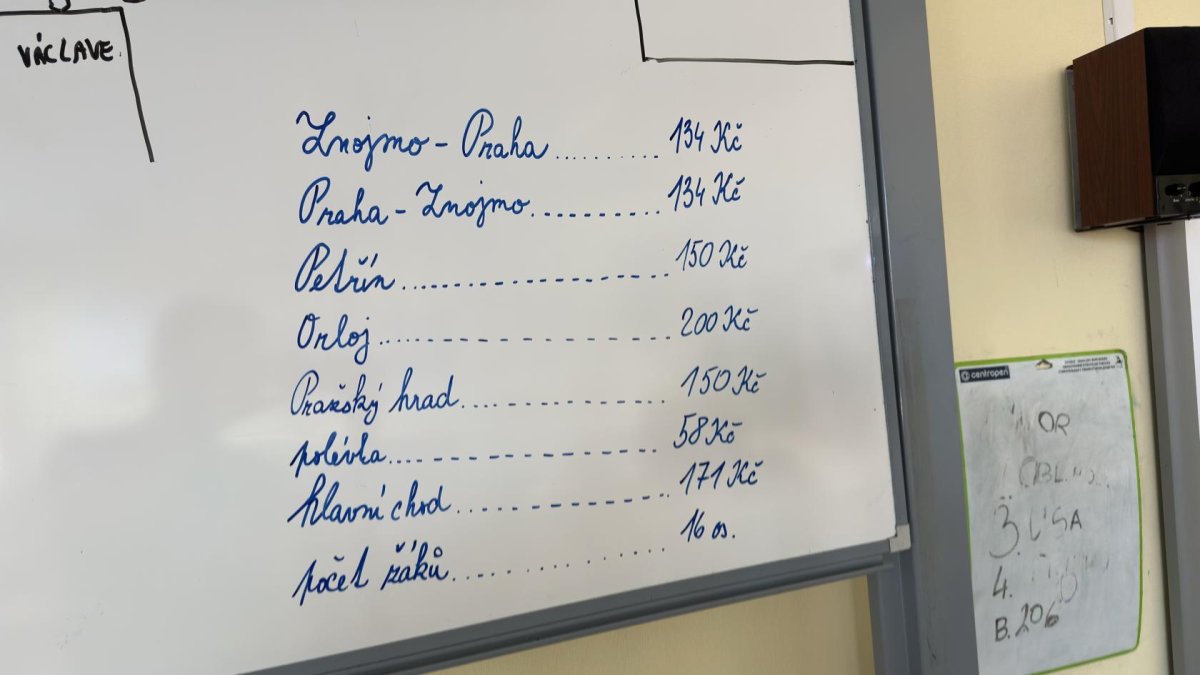 VÁCLAVE
Znojmo - Praha .......... 134 Kč
Praha - Znojmo .......... 134 Kč
Petřín .......... 150 Kč
Orloj .......... 200 Kč
Pražský hrad .......... 150 Kč
polévka .......... 58 Kč
hlavní chod .......... 171 Kč
počet žáků .......... 16 os.
centropen
OR
3. LÍSA
4.
B. 206